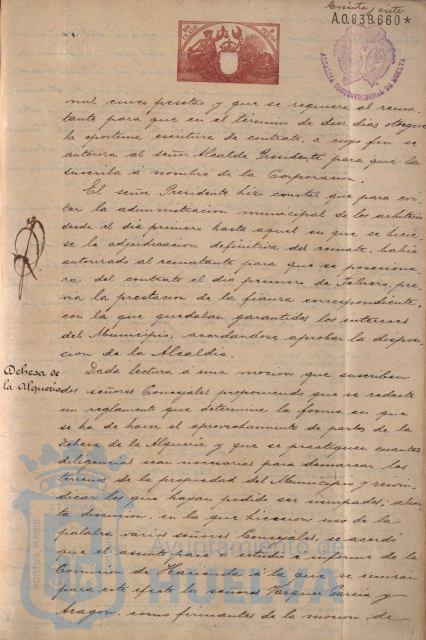 Treinta y siete
A.0.838,660*
ALCALDIA CONSTITUCIONAL DE HUELVA
mil cinco pesetas y que se requiera al rema-
tante para que en el término de diez dias otorgue
la oportuna escritura de contrato, á cuyo fin se
autoriza al señor Alcalde Presidente para que la
suscriba á nombre de la Corporacion.
El señor Presidente hizo constar que para evi-
tar la administracion municipal de los arbitrios
desde el dia primero hasta aquel en que se hicie-
se la adjudicacion definitiva del remate, habia
autorizado al rematante para que se posesiona-
ra del contrato el dia primero de Febrero, pre-
via la prestacion de la fianza correspondiente,
con la que quedaban garantidos los intereses
del Municipio, acordandose aprobar la disposi-
cion de la Alcaldia.
Dehesa de
la Alqueria
Dada lectura á una mocion que suscriben
dos señores Concejales proponiendo que se redacte
un reglamento que determine la forma en que
se ha de hacer el aprovechamiento de pastos de la
Dehesa de la Alqueria y que se practiquen cuantas
diligencias sean necesarias para demarcar los
terrenos de la propiedad del Municipio y reivin-
dicar los que hayan podido ser usurpados; abier-
ta discusion en la que hicieron uso de la
palabra varios señores Concejales, se acordó
que el asunto pase á estudio é informe de la
Comision de Hacienda á la que se reunirán
para este efecto los señores Vazquez Garcia y
Aragon, como firmantes de la mocion de
Ayuntamiento de
HUELVA